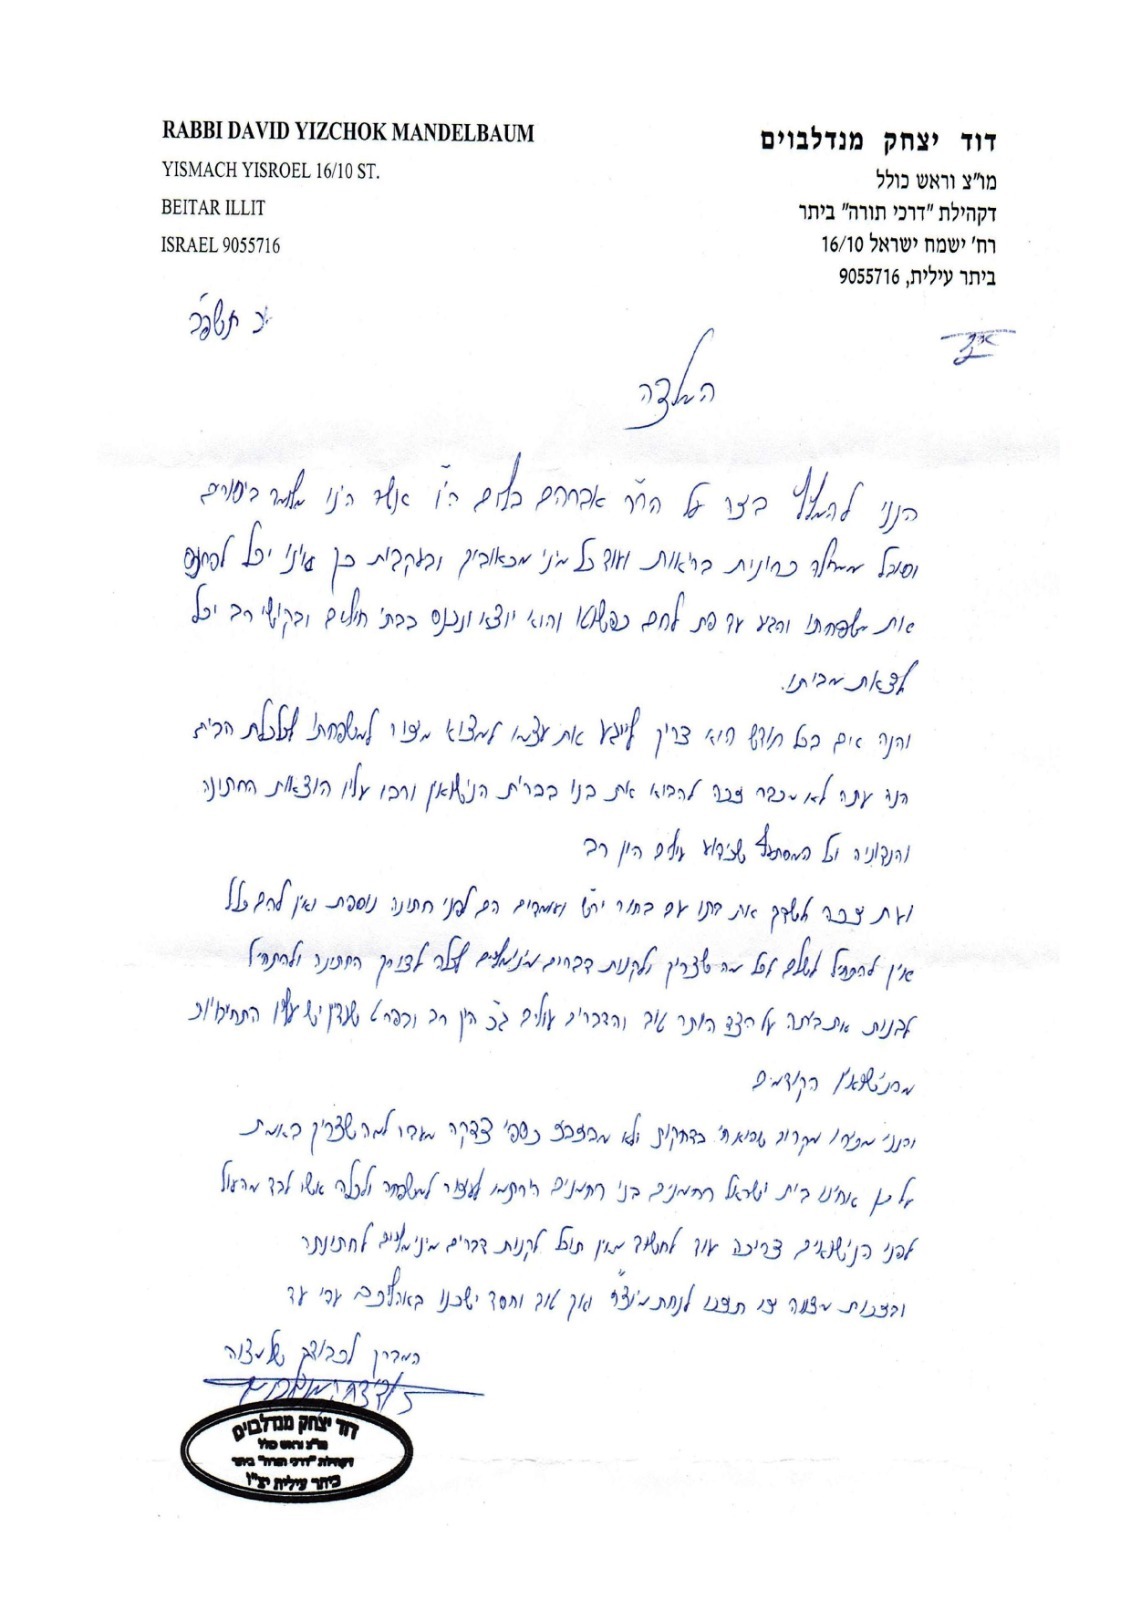 RABBI DAVID YIZCHOK MANDELBAUM
YISMACH YISROEL 16/10 ST.
BEITAR ILLIT
ISRAEL 9055716
דוד יצחק מנדלבוים
מו"צ וראש כולל
דקהילת "דרכי תורה" ביתר
רח' ישמח ישראל 16/10
ביתר עילית, 9055716
המלצה
הנני להמליץ בצר על הר"ר אברהם ה"ו אשר הינו ביסורים
וסובל ממחלה כרונית בריאות ועוד כל מיני מכאובים ובעקבות כך אינו יכל לפרנס
את משפחתו והגע עד פת לחם כפשוטו והוא יוצא ונכנס בבתי חולים ובקושי רב יכל
לצאת מביתו.
והנה אים בכל חודש הוא צריך לייגע את עצמו למצוא מזור למשפחתו לכלכלת הבית
הנה עתה לא מכבר זכה להביא את בנו בברית הנישואין ורבו עליו הוצאות החתונה
והנדוניה וכל המסתעף שכידוע עולים הון רב
ועת זכה לשדך את בתו עם בחור ועומדים הם לפני חתונה נוספת ואין להם כלל
אין להתחיל לשלם לכל מה שצריך ולקנות דברים מינימלים לכלה לצורך החתונה ולהתחיל
לבנות את ביתה על הצד היותר טוב והדברים עולים ג"כ הון רב ובפרט שעדין יש עליו התחיבויות
מהנישואין הקודמים
והנני מכירו מקרוב שהוא חי בדחקות ולא מבזבז כספי צדקה מעבר למה שצריך באמת
על כן אחינו בית ישראל רחמנים בני רחמנים הירתמו לעזור למשפחה ולכלה אשר לבד מהעול
לפני הנישואים צריכה עוד לחשוב מאין תוכל לקנות דברים מינימלים לחתונתה
ובזכות מצוה זו תזכו לנחת ואך טוב וחסד ישכנו באהליכם עדי עד
המברך לכבודה של מצוה
דוד יצחק מנדלבוים
דוד יצחק מנדלבוים
מו"צ וראש כולל
דקהילת "דרכי תורה" ביתר
ביתר עילית יצ"ו